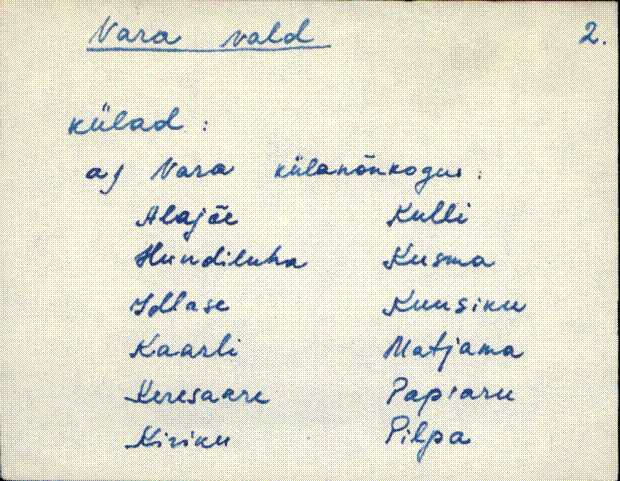 Vara vald 2.
külad :
a) Vara külanõukogus :
Alajõe Kulli
Hundiluha Kusma
Idlase Kuusiku
Kaarli Matjama
Keresaare Papiaru
Kiriku Pilpa